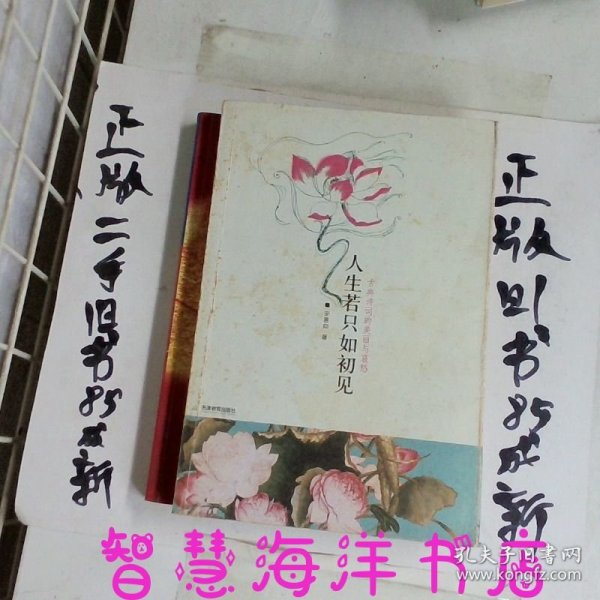 正版二手旧书85成新
人生若只如初见
古典诗词的美丽与哀愁
安意如 著
天津教育出版社
正版旧书85成新
智慧海洋书店
孔夫子旧书网
www.kongfz.com